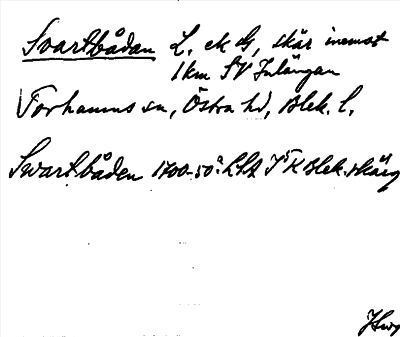 Svartbådan L. ek G, skär inemot
1 km SV Inlängan
Torhamns sn, Östra hd, Blek. l.
Swartbåden 1700-50 LSA Blek. skärg